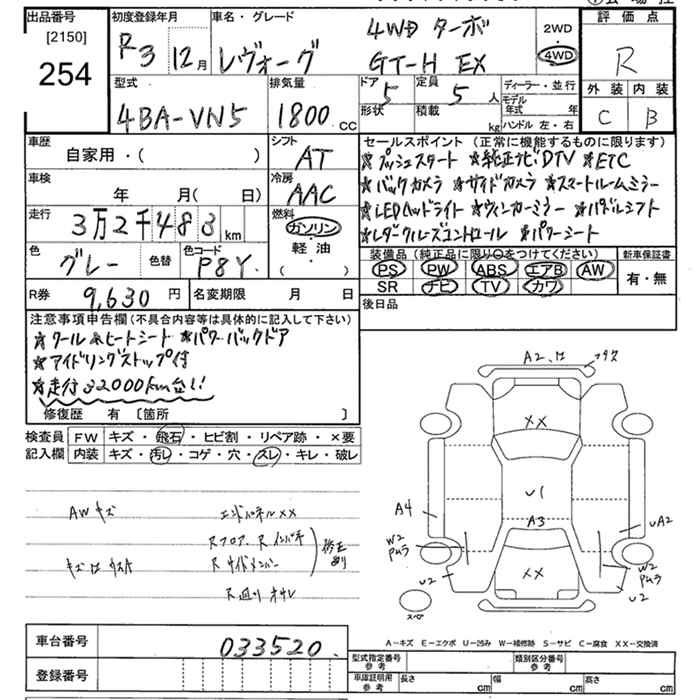 出品番号
[2150]
254
初度登録年月
R3 12月
車名・グレード
レヴォーグ
4WD ターボ
GT-H EX
2WD
・
4WD
評価点
R
外装 内装
C B
型式
4BA-VN5
排気量
1800 cc
ドア
5
定員
5 人
形状
積載
kg
ディーラー・並行
モデル年式 年
ハンドル 左・右
車歴
自家用・( )
シフト
AT
車検
年 月( 日)
冷房
AAC
走行
3万2千483 km
燃料
ガソリン
・
軽・油
( )
色
グレー
色替
色コード
P8Y
R券 9,630 円
名変期限 月 日
セールスポイント(正常に機能するものに限ります)
★プッシュスタート ★純正ナビDTV ★ETC
★バックカメラ ★サイドカメラ ★スマートルームミラー
★LEDヘッドライト ★ウィンカーミラー ★パドルシフト
★レダークルーズコントロール ★パワーシート
装備品(純正品に限り○をつけてください)
PS PW ABS エアB AW
SR ナビ TV カワ
新車保証書
有・無
後日品
注意事項申告欄(不具合内容等は具体的に記入して下さい)
★クール&ヒートシート ★パワーバックドア
★アイドリングストップ付
★走行32000km台!
修復歴 有 〔箇所 〕
検査員記入欄
FW キズ・飛石・ヒビ割・リペア跡・×要
内装 キズ・汚レ・コゲ・穴・スレ・キレ・破レ
AWキズ
エンドパネルXX
Rフロア、Rインパネ
Rサイドメンバー
修正あり
A2
XX
U1
A3
A4
UA2
W2
W2
U2
XX
U2
スペア
A-キズ E-エクボ U-凹み W-補修跡 S-サビ C-腐食 XX-交換済
車台番号
033520
登録番号
型式指定番号
参考
類別区分番号
参考
車庫証明用
参考
長さ cm
幅 cm
高さ cm